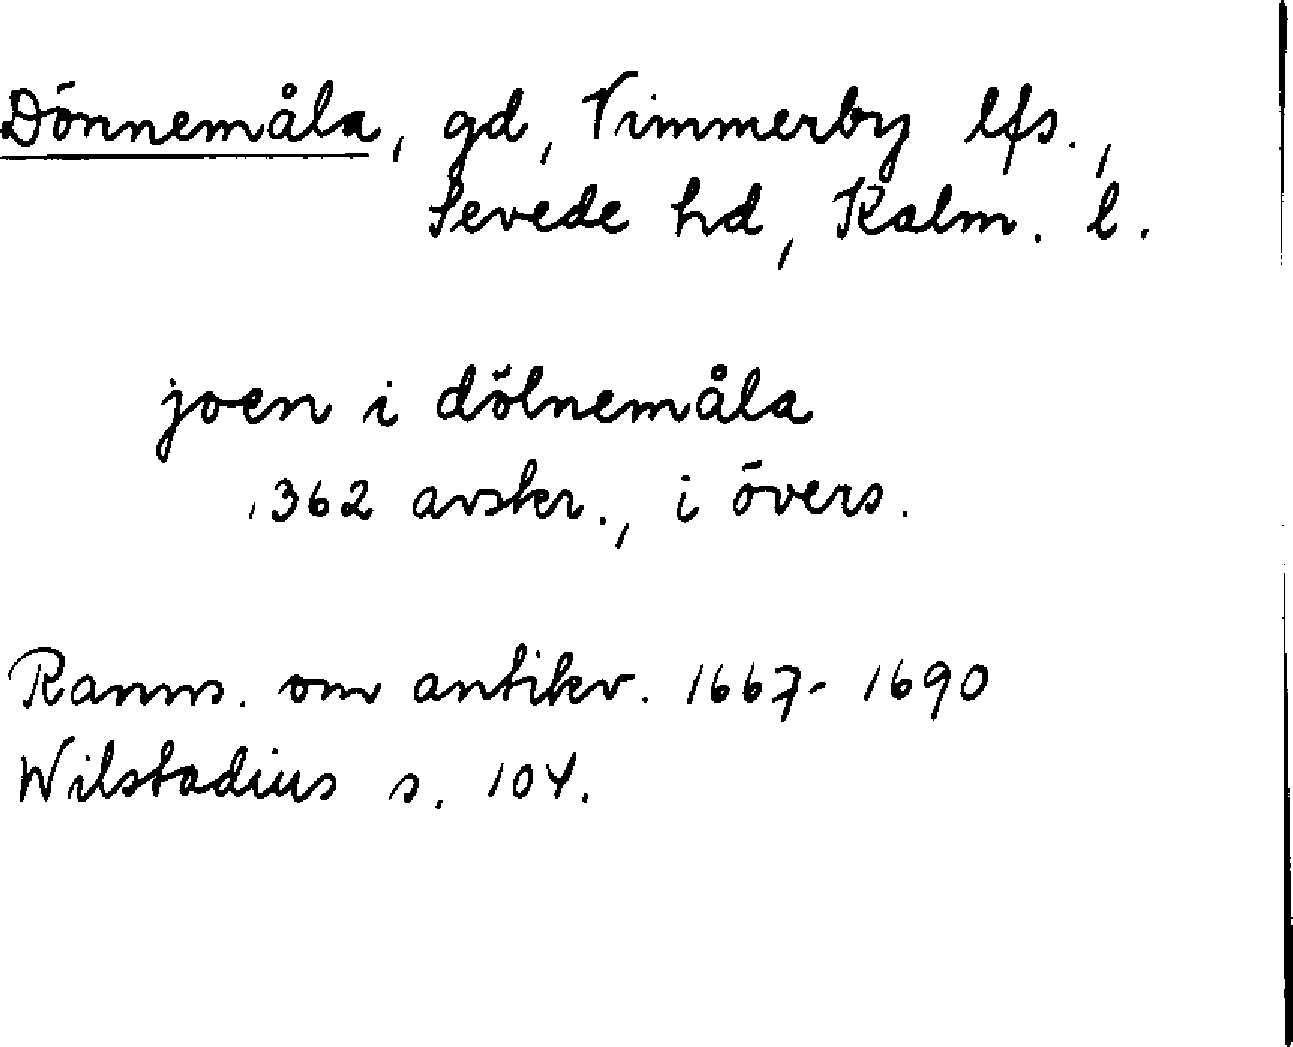 Dönnemåla, gd, Vimmerby lfs.,
Sevede hd, Kalm. l.
joen i dölnemåla
1362 avskr., i övers.
Ranns. om antikv. 1667-1690
Wilstadius s. 104.